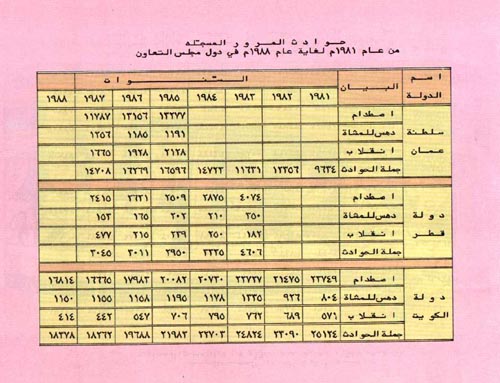 حوادث المرور المسجلة
من عام ١٩٨١م لغاية عام ١٩٨٨م في دول مجلس التعاون
اسم الدولة البيان السنوات
١٩٨١ ١٩٨٢ ١٩٨٣ ١٩٨٤ ١٩٨٥ ١٩٨٦ ١٩٨٧ ١٩٨٨
سلطنة عمان
اصطدام ١٣٢٧٧ ١٣١٥٦ ١١٧٨٧
دهس للمشاة ١١٩١ ١١٨٥ ١٢٥٦
انقلاب ٢١٢٨ ١٩٢٨ ١٦٦٥
جملة الحوادث ٩٦٣٤ ١٢٣٥٦ ١١٦٣١ ١٤٧٢٣ ١٦٥٩٦ ١٦٢٦٩ ١٤٧٠٨
دولة قطر
اصطدام ٤٠٧٤ ٢٨٧٥ ٢٥٠٩ ٢٦٣١ ٢٤١٥
دهس للمشاة ٣٥٠ ٢١٠ ٢٠٢ ١٦٥ ١٥٣
انقلاب ١٨٢ ٢٥٠ ٢٣٩ ٢١٥ ٤٧٧
جملة الحوادث ٤٦٠٦ ٣٣٣٥ ٢٩٥٠ ٣٠١١ ٣٠٤٥
دولة الكويت
اصطدام ٢٣٧٤٩ ٢١٤٧٥ ٢٢٧٢٧ ٢٠٧٣٠ ٢٠٠٨٢ ١٧٩٨٣ ١٦٦٦٥ ١٦٨١٤
دهس للمشاة ٨٠٤ ٩٢٦ ١٣٣٥ ١١٧٨ ١١٩٥ ١١٥٨ ١١٥٥ ١١٥٠
انقلاب ٥٧١ ٦٨٩ ٧٦٢ ٧٩٥ ٧٠٦ ٥٤٧ ٤٤٢ ٤١٤
جملة الحوادث ٢٥١٢٤ ٢٣٠٩٠ ٢٤٨٢٤ ٢٢٧٠٣ ٢١٩٨٣ ١٩٦٨٨ ١٨٢٦٢ ١٨٣٧٨